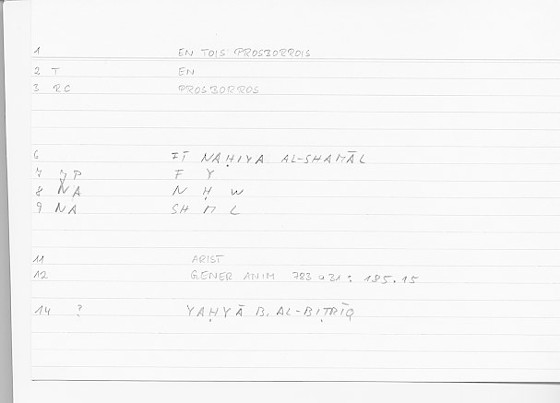 1 EN TOIS PROSBORROIS
2 T EN
3 RC PROSBORROS
6 FĪ NAḤIYA AL-SHAMĀL
7 P F Y
8 NA N Ḥ W
9 NA SH M L
11 ARIST
12 GENER ANIM 783 a 31 : 185.15
14 ? YAḤYĀ B. AL-BIṬRĪQ